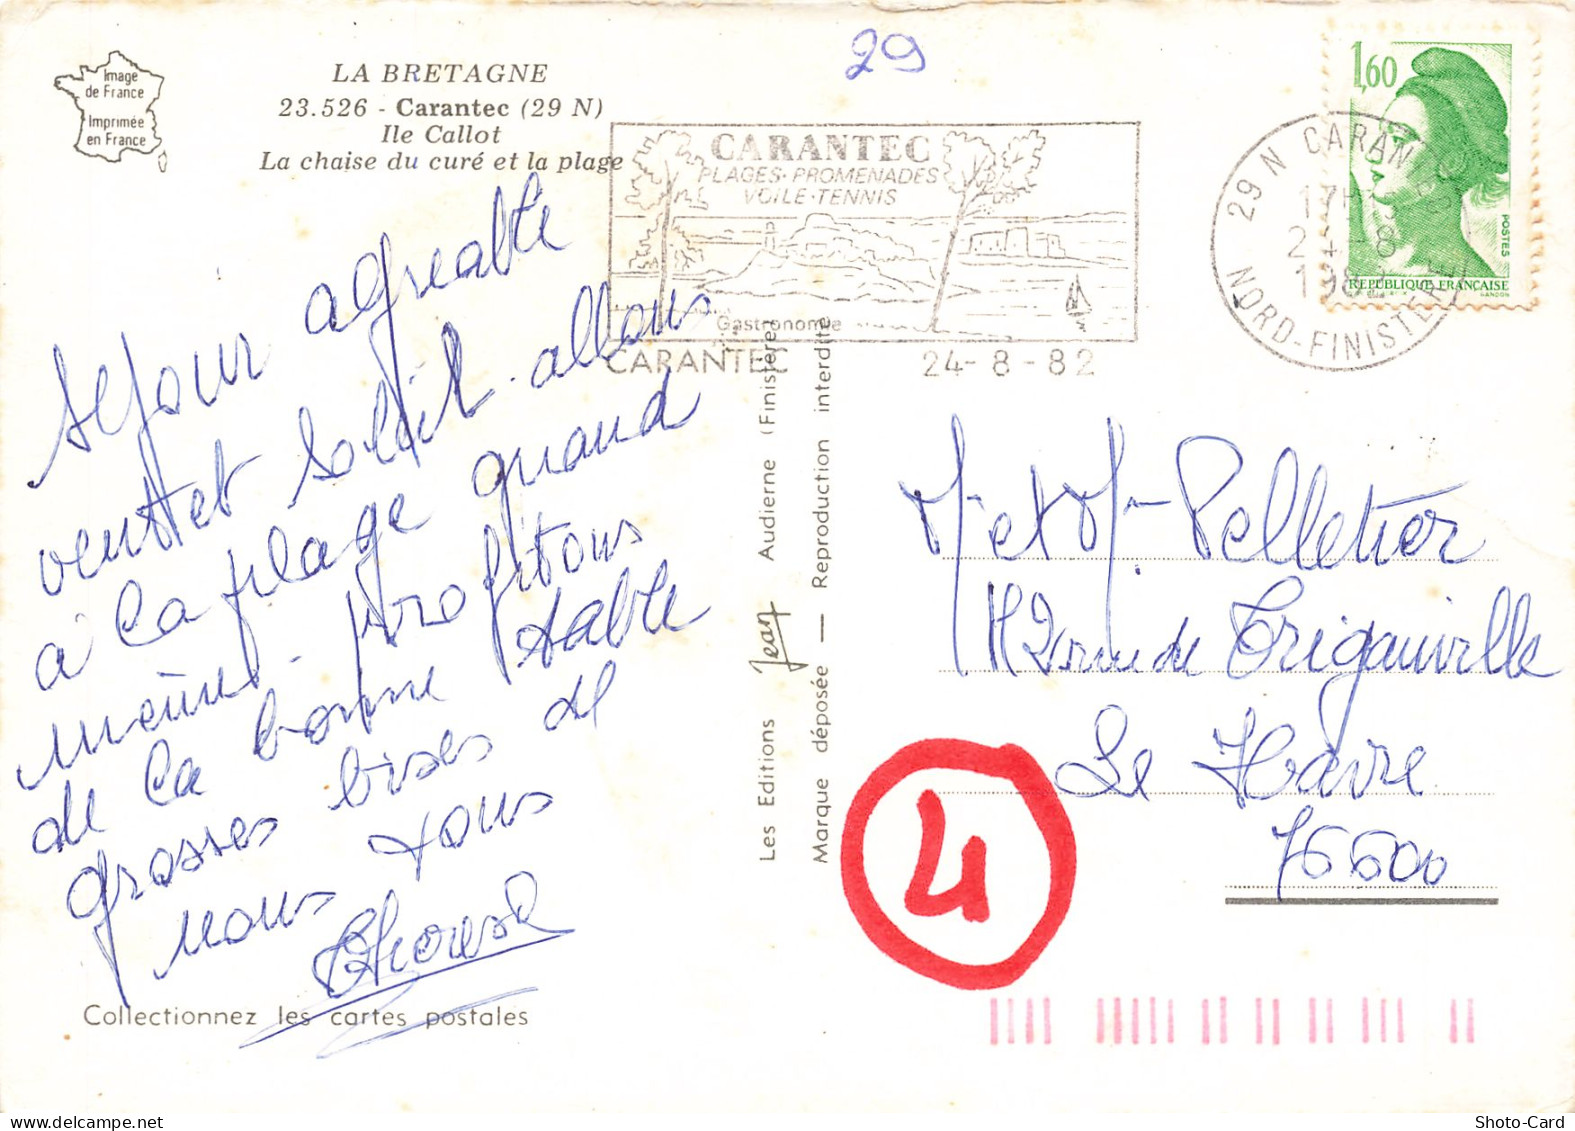 Image
de France
Imprimée
en France
LA BRETAGNE
23.526 - Carantec (29 N)
Ile Callot
La chaise du curé et la plage
29
CARANTEC
PLAGES · PROMENADES
VOILE · TENNIS
Gastronomie
CARANTEC 24-8-82
29 N CARANTEC
17H
24-8
1982
NORD-FINISTERE
1,60
POSTES
REPUBLIQUE FRANCAISE
GANDON
séjour agréable
vent et soleil. allons
à la plage quand
même profitons
de la bonne table
grosses bises de
nous tous
Les Editions Jean Audierne (Finistère)
Marque déposée — Reproduction interdite
Mr et Mme Pelletier
rue de Trigauville
Le Havre
76600
4
Collectionnez les cartes postales
Shoto-Card